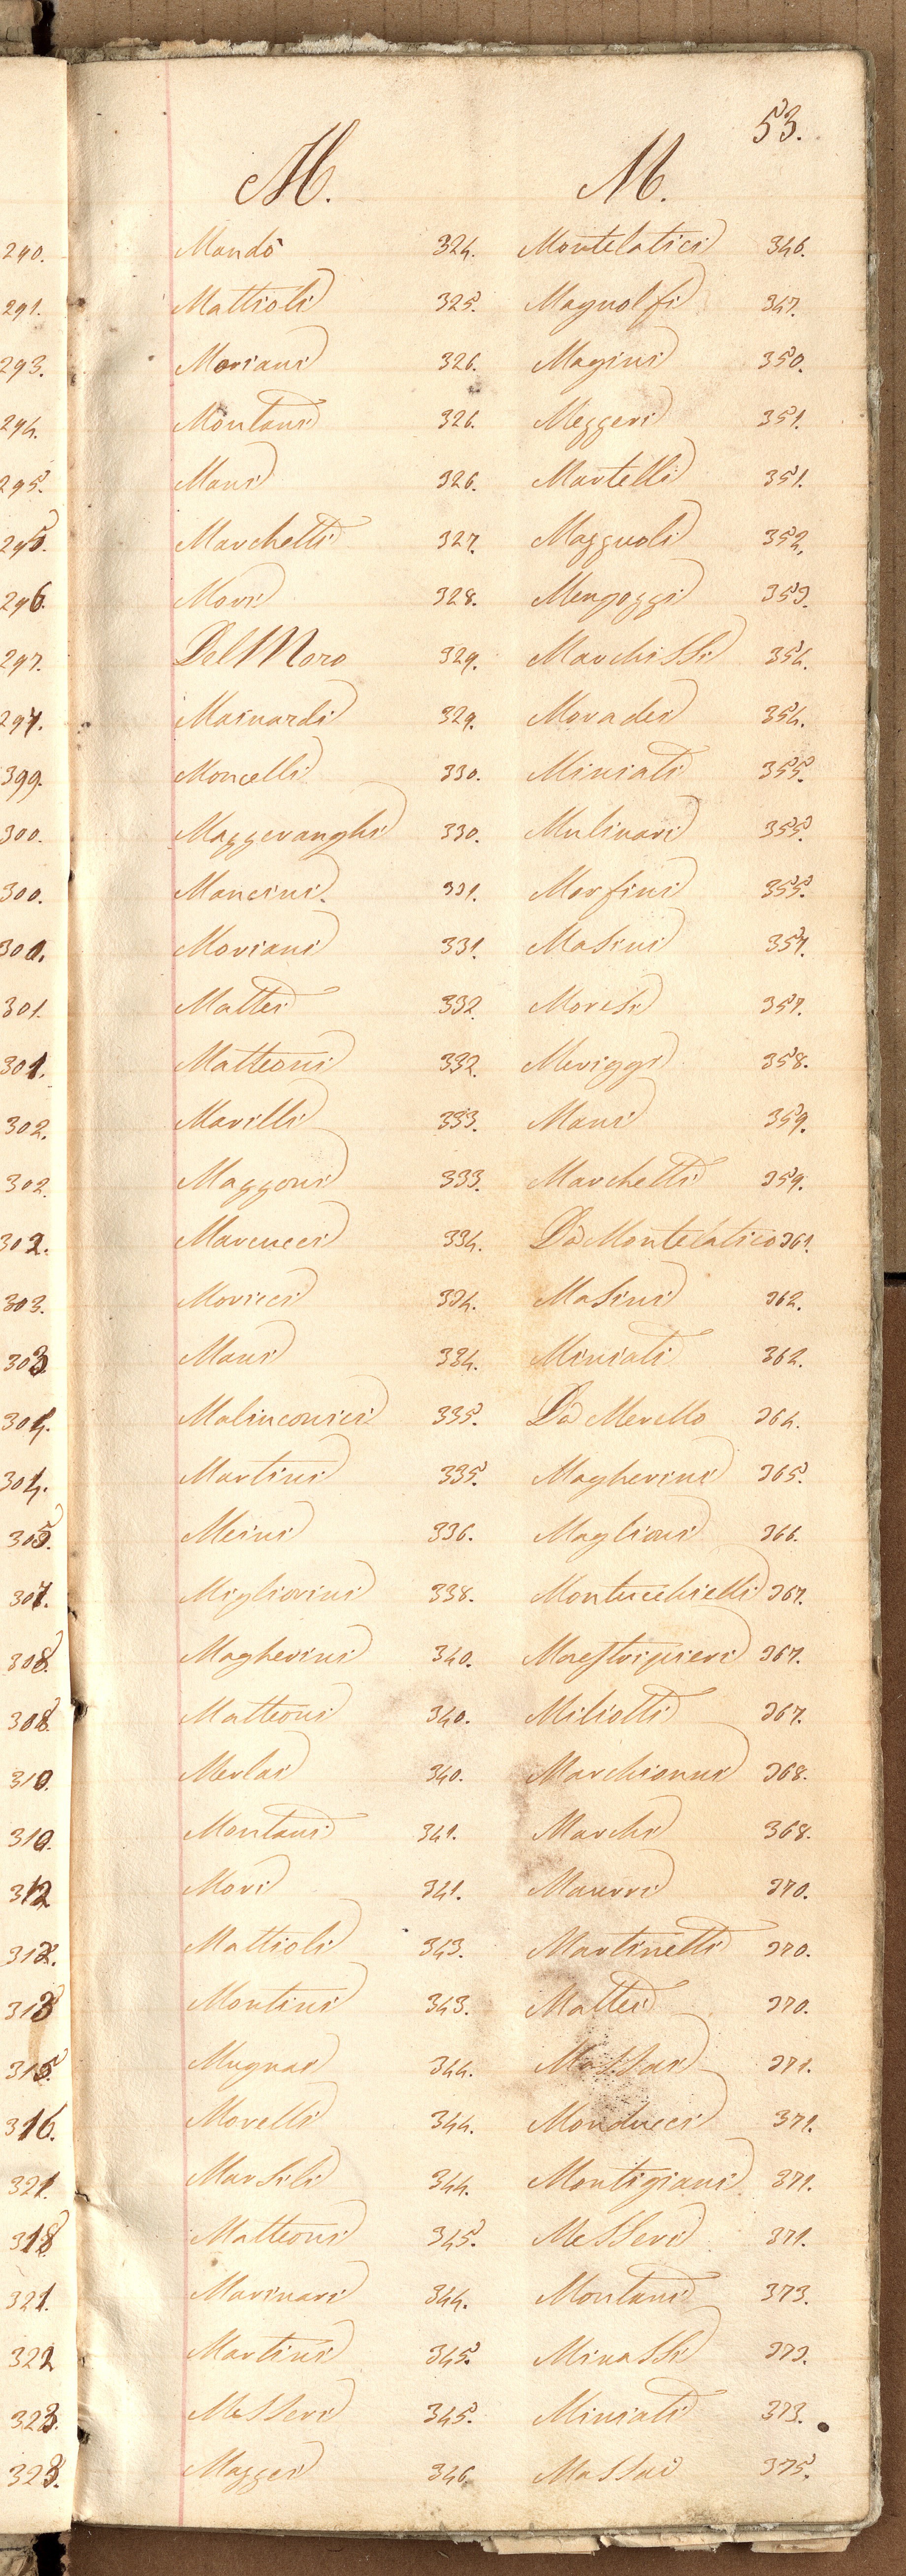 53.
M.
Mandò 324.
Mattioli 325.
Moriani 326.
Montani 326.
Mani 326.
Marchetti 327.
Mori 328.
Del Moro 329.
Mainardi 329.
Moncelli 330.
Mazzeranghi 330.
Mancini. 331.
Moriani 331.
Mattei 332.
Matteoni 332.
Marilli 333.
Mazzoni 333.
Marcucci 334.
Moricci 334.
Mani 334.
Malinconici 335.
Martini 335.
Meini 336.
Migliorini 338.
Magherini 340.
Matteoni 340.
Merlai 340.
Montani 341.
Mori 341.
Mattioli 343.
Montini 343.
Mugnai 344.
Morelli 344.
Marsili 344.
Matteoni 345.
Marinari 344.
Martini 345.
Messeri 345.
Mazzei 346.
M.
Montelatici 346.
Magnolfi 347.
Magini 350.
Mezzeri 351.
Martelli 351.
Mazzuoli 352.
Mengozzi 353.
Marchissi 354.
Moradei 354.
Miniati 355.
Mulinari 355.
Morfini 355.
Masini 357.
Moresi 357.
Meriggi 358.
Mani 359.
Marchetti 359.
Da Montelatico 361.
Masini 362.
Miniati 362.
Da Merello 364.
Magherini 365.
Maglioni 366.
Montucchielli 367.
Maestripieri 367.
Miliotti 367.
Marchionni 368.
Marchi 368.
Maurri 370.
Martinetti 370.
Mattei 370.
Massai 371.
Monducci 371.
Montigiani 371.
Messeri 371.
Montani 373.
Minassi 373.
Miniati 373.
Massai 375.
290.
291.
293.
294.
295.
295.
296.
297.
297.
399.
300.
300.
300.
301.
301.
302.
302.
302.
303.
303
304.
304.
305.
307.
308.
308
310.
310.
312
312.
313
315.
316.
321.
318
321.
322
323.
323.